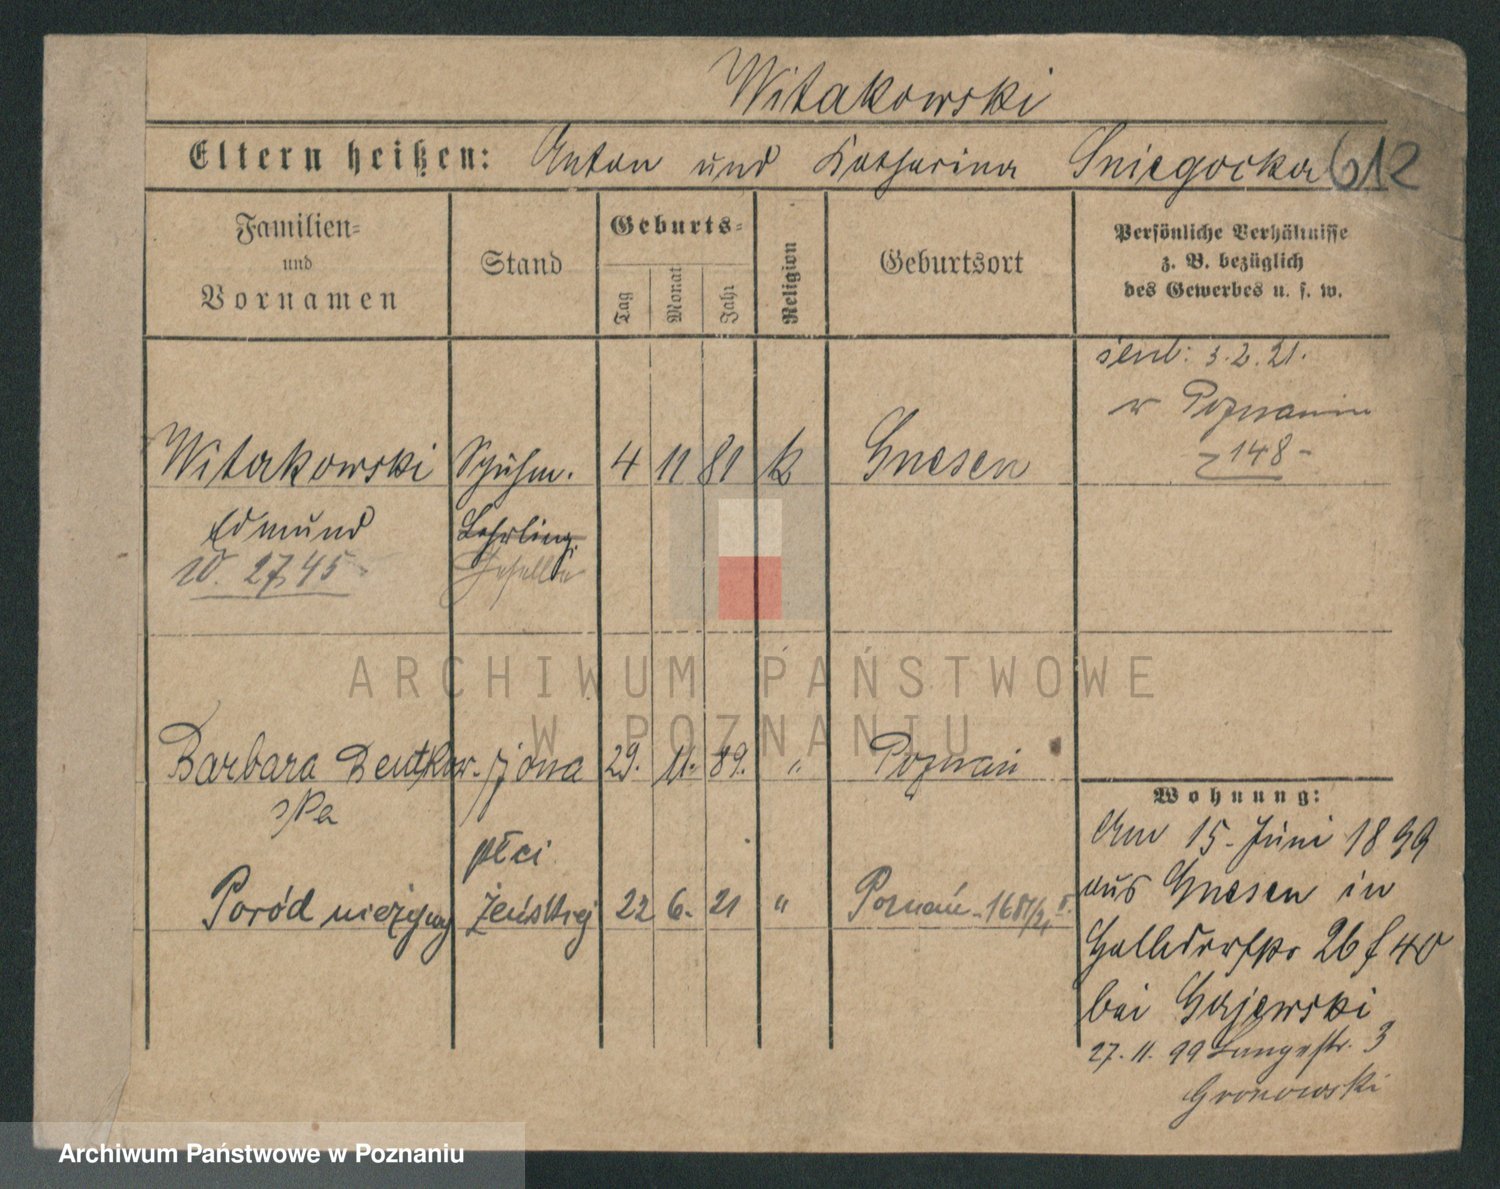 Witakowski
Eltern heißen: Anton und Katharina Sniegocka 612
Familien-
und
Vornamen
Stand
Geburts-
Tag
Monat
Jahr
Religion
Geburtsort
Persönliche Verhältnisse
z. B. bezüglich
des Gewerbes u. s. w.
3. 2. 21.
w Poznaniu
148
Witakowski Schuhm. 4 11 81 k Gnesen
Edmund Lehrling
10. 27,45 Geselle
Barbara Dentkow- żona 29. 11. 89. " Poznań
ska
Wohnung:
Am 15. Juni 1899
płci
aus Gnesen in
Poród nieżywy żeńskiej 22 6. 21 " Poznań
26 f 40
bei Gajewski
27. 11. 99 Langestr. 3
Gronowski
ARCHIWUM PAŃSTWOWE
W POZNANIU
Archiwum Państwowe w Poznaniu